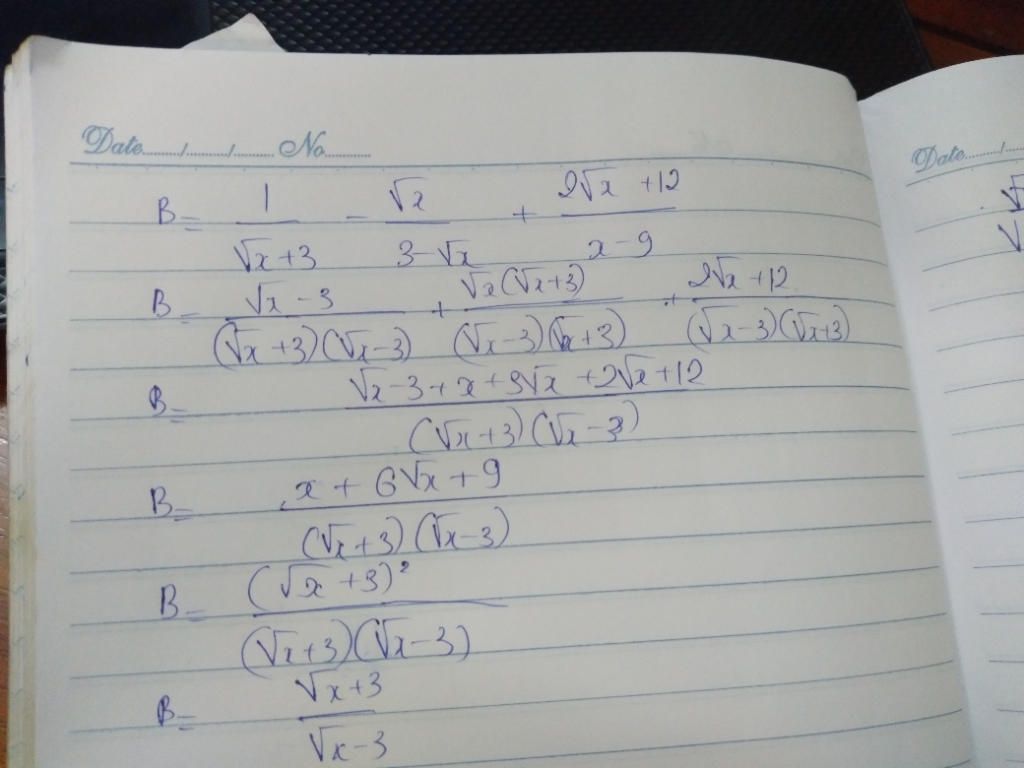 Date......../........./......... No..........
Date......../......
B = 1/(√x + 3) - √x/(3 - √x) + (2√x + 12)/(x - 9)
B = (√x - 3)/((√x + 3)(√x - 3)) + √x(√x + 3)/((√x - 3)(√x + 3)) + (2√x + 12)/((√x - 3)(√x + 3))
B = (√x - 3 + x + 3√x + 2√x + 12)/((√x + 3)(√x - 3))
B = (x + 6√x + 9)/((√x + 3)(√x - 3))
B = (√x + 3)²/((√x + 3)(√x - 3))
B = (√x + 3)/(√x - 3)